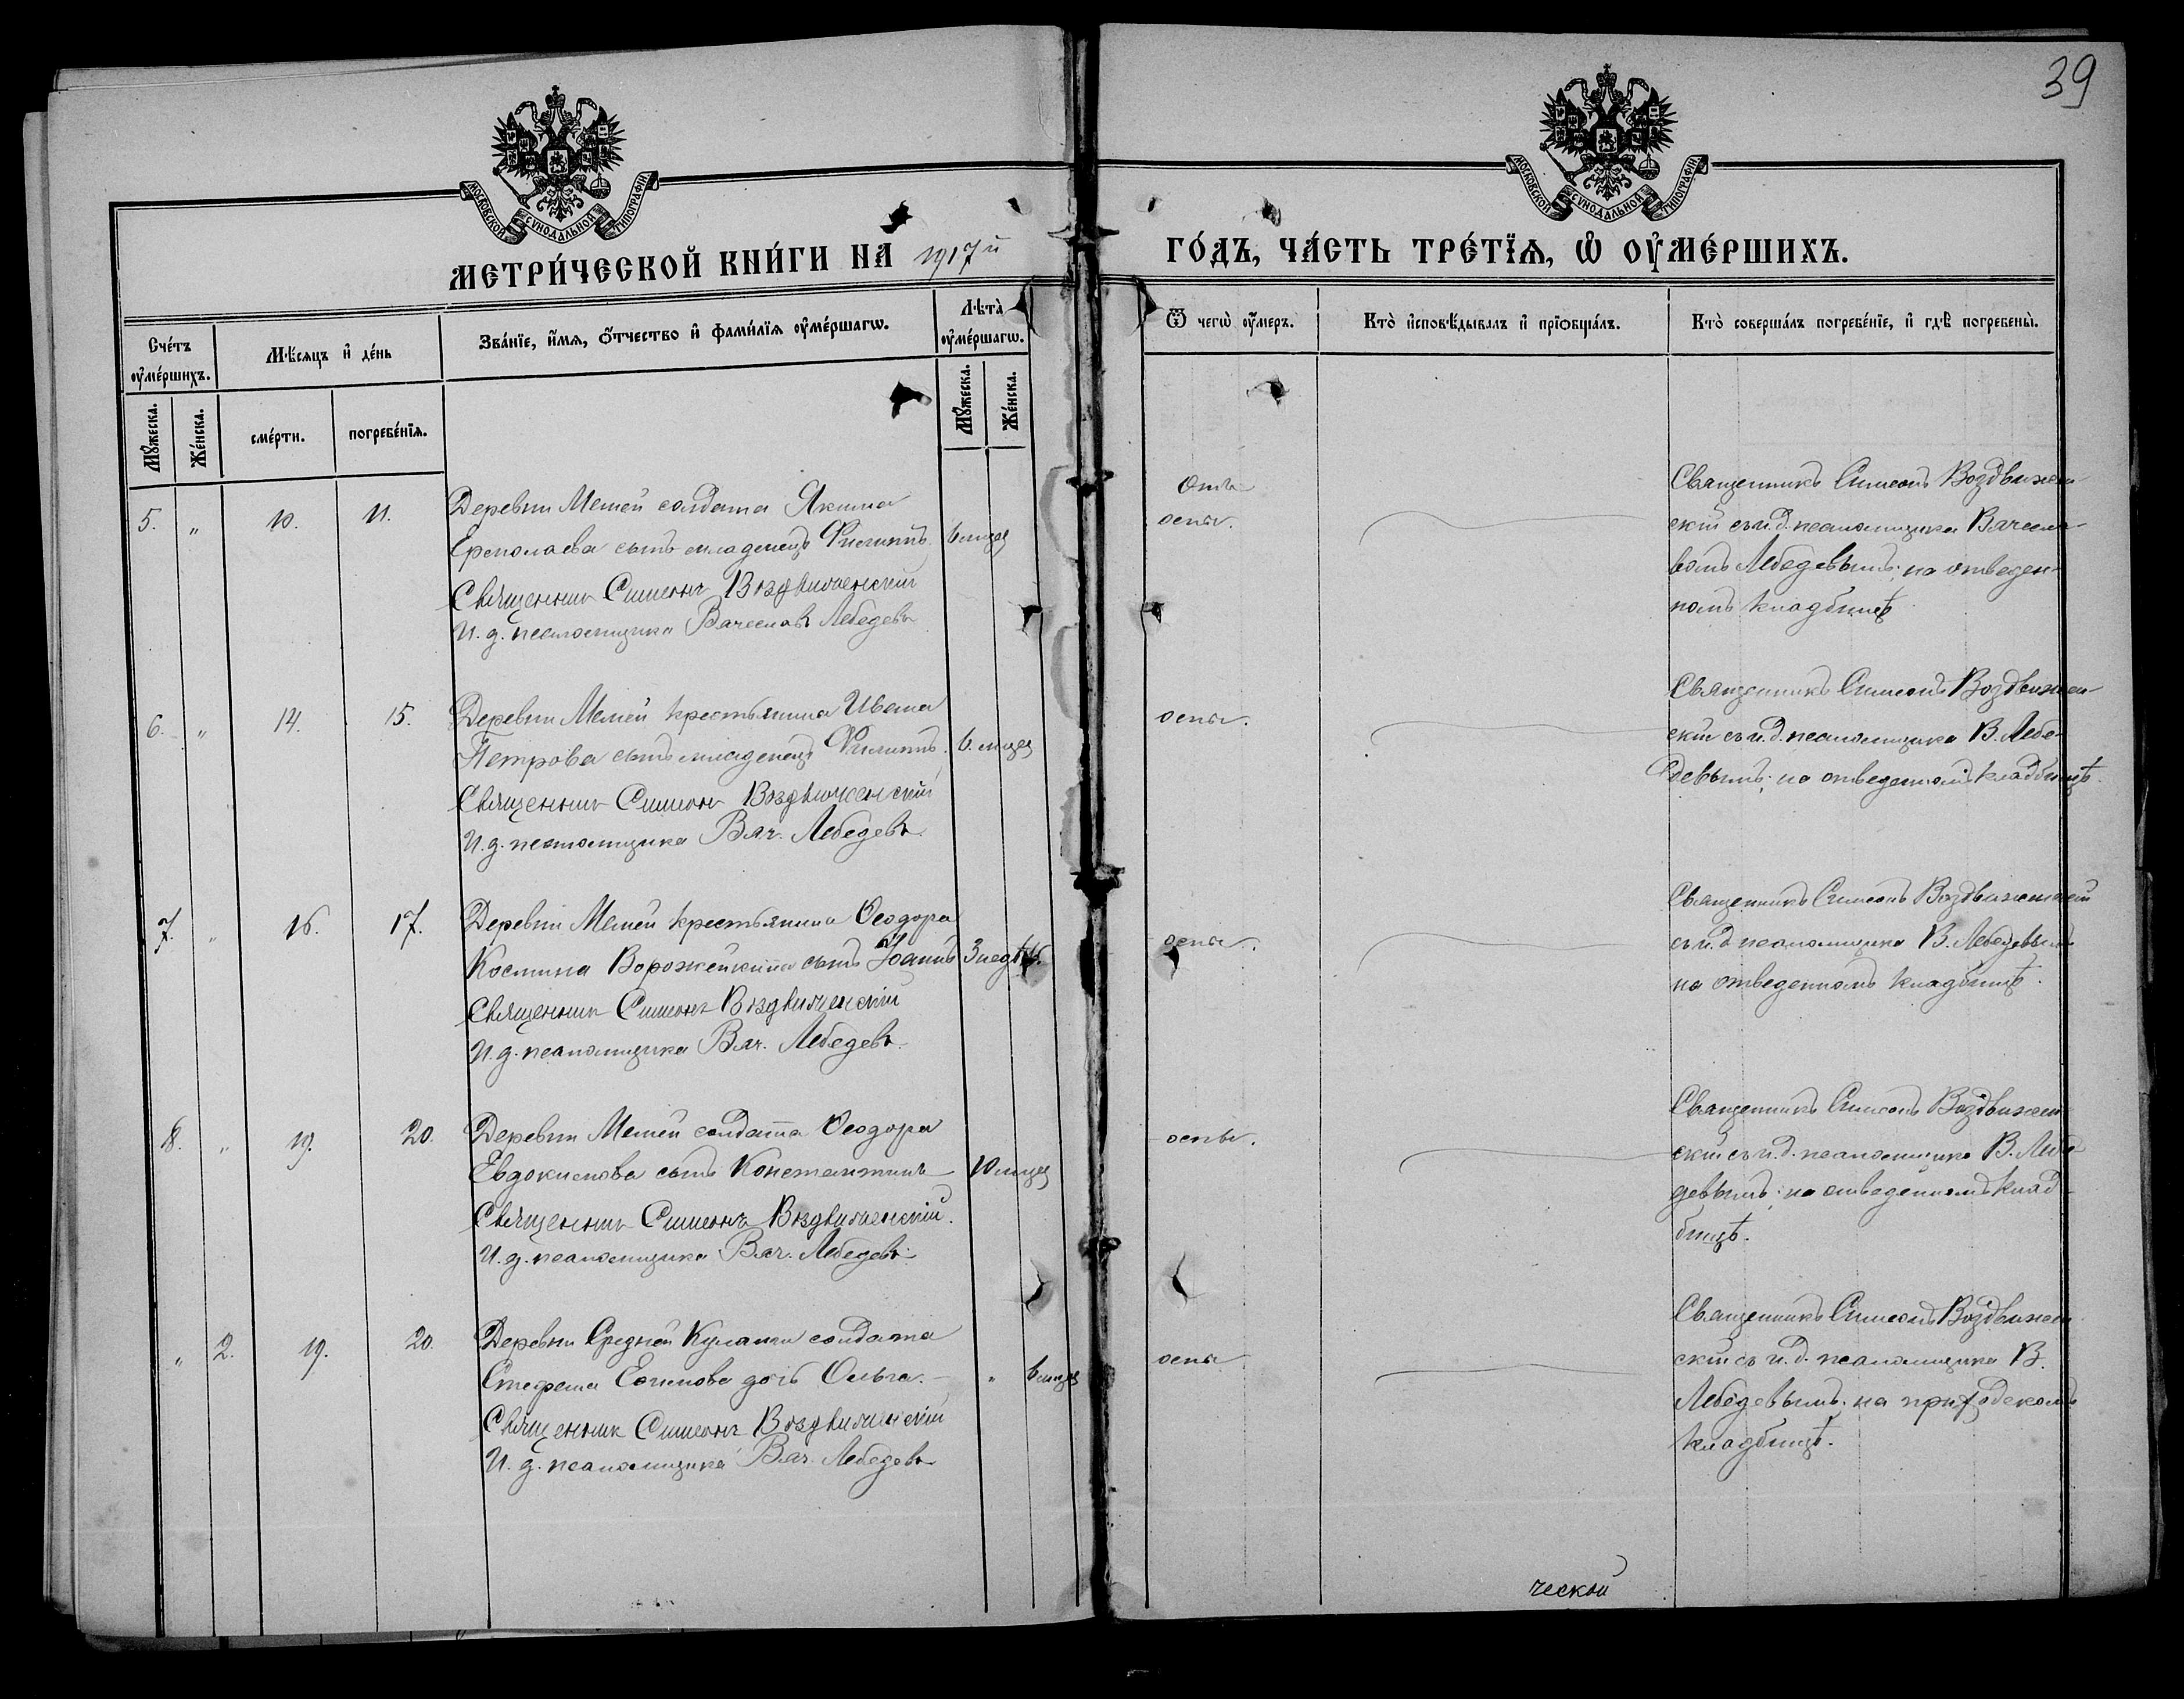 39
МОСКОВСКОЙ СѴНОДАЛЬНОЙ ТИПОГРАФІИ
МОСКОВСКОЙ СѴНОДАЛЬНОЙ ТИПОГРАФІИ
МЕТРИ́ЧЕСКОЙ КНИ́ГИ НА 1917й
ГО́ДЪ, ЧА́СТЬ ТРЕ́ТЇѦ, Ѡ҆ ОУ҆МЕ́РШИХЪ.
Сче́тъ оу҆ме́ршихъ.
Мѣ́сѧцъ и҆ де́нь
Зва́нїе, и҆́мѧ, ѻ҆́тчество и҆ фами́лїѧ оу҆ме́ршагѡ.
Лѣ́та оу҆ме́ршагѡ.
Ѿ чегѡ̀ оу҆́меръ.
Кто̀ и҆сповѣ́дывалъ и҆ прїѡбща́лъ.
Кто̀ соверша́лъ погребе́нїе, и҆ гдѣ̀ погребены̀.
Мꙋ́жеска.
Же́нска.
сме́рти.
погребе́нїѧ.
Мꙋ́жеска.
Же́нска.
5. „ 10. 11. Деревни Мемей солдата Якима
Ермолаева сынъ младенецъ Филиппъ. 6 мцев
Священник Симеонъ Воздвиженскій
И. д. псаломщика Вячеславъ Лебедевъ
Отъ
оспы.
Священникъ Симеонъ Воздвижен-
скій съ и.д. псаломщика Вячесла-
вомъ Лебедевымъ; на отведен-
номъ кладбищѣ
6. „ 14. 15. Деревни Мемей крестьянина Ивана
Петрова сынъ младенецъ Филиппъ. 6 мцев
Священник Симеонъ Воздвиженскій
И. д. псаломщика Вяч. Лебедевъ.
оспы.
Священникъ Симеонъ Воздвижен-
скій съ и.д. псаломщика В. Лебе-
девымъ; на отведенномъ кладбищѣ.
7. „ 16. 17. Деревни Мемей крестьянина Ѳеодора
Костина Ворожейкина сынъ Іоаннъ 3 недѣль
Священник Симеонъ Воздвиженскій
И. д. псаломщика Вяч. Лебедевъ.
оспы.
Священникъ Симеонъ Воздвиженскій
съ и.д. псаломщика В. Лебедевымъ
на отведенномъ кладбищѣ.
8. „ 19. 20. Деревни Мемей солдата Ѳеодора
Евдокимова сынъ Константинъ 10 мцев
Священник Симеонъ Воздвиженскій.
И. д. псаломщика Вяч. Лебедевъ.
оспы.
Священникъ Симеонъ Воздвижен-
скій съ и.д. псаломщика В. Лебе-
девымъ; на отведенномъ клад-
бищѣ.
„ 2. 19. 20. Деревни Средней Куланги солдата
Стефана Ефимова дочь Ольга. „ 6 мцев
Священник Симеонъ Воздвиженскій
И. д. псаломщика Вяч. Лебедевъ
оспы
Священникъ Симеонъ Воздвижен-
скій съ и.д. псаломщика В.
Лебедевымъ; на приходскомъ
кладбищѣ.
ческой